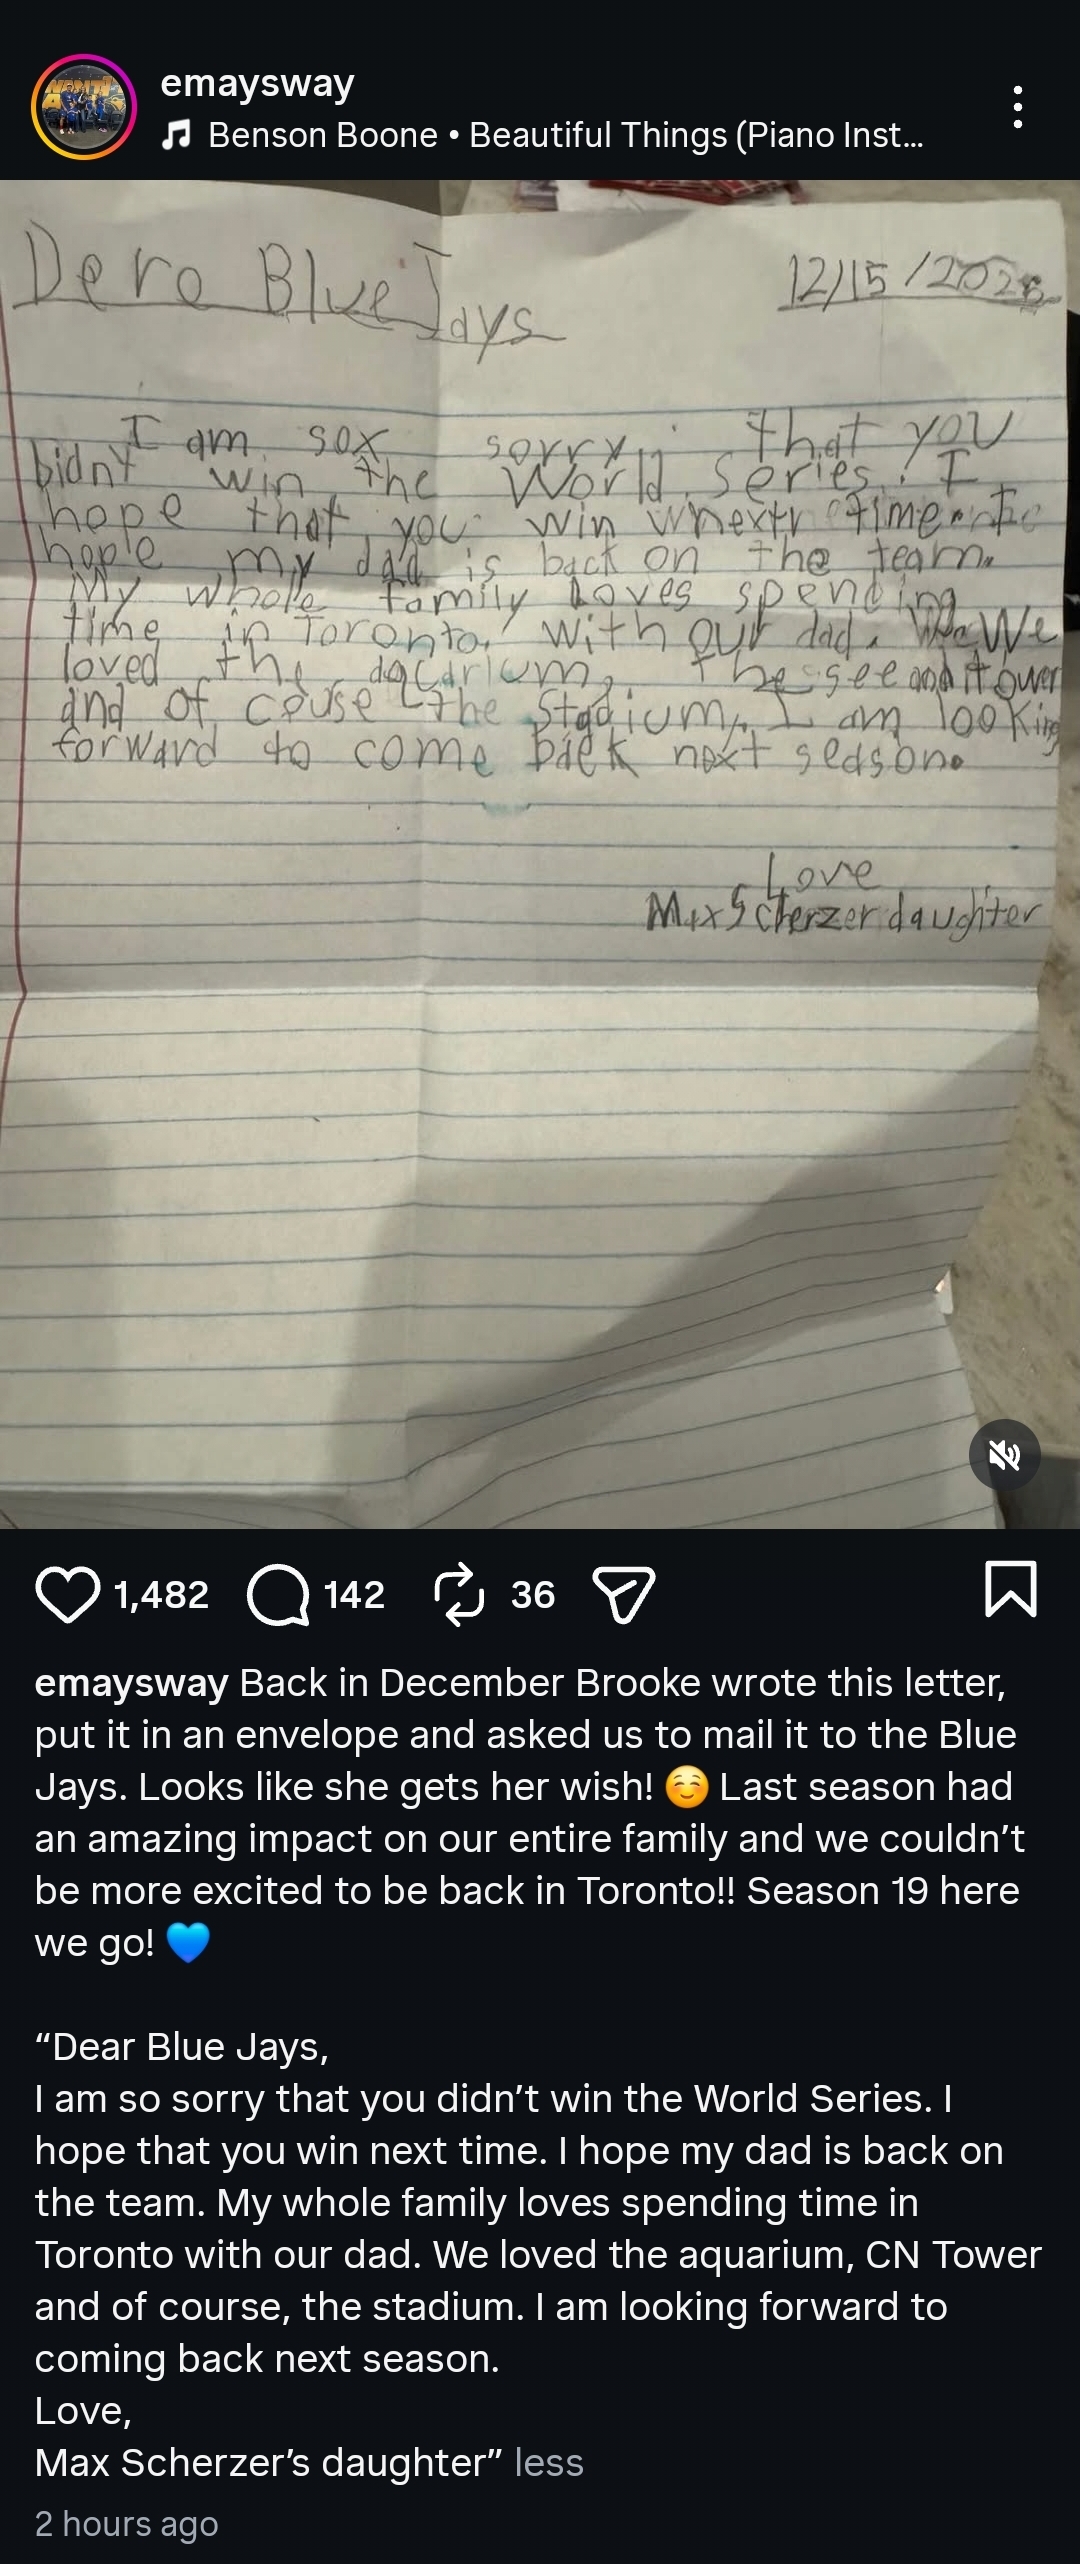 emaysway
Benson Boone • Beautiful Things (Piano Inst...
Dero Blue Jays
12/15/2025
I am sox sorry that you
bidnt win the World series. I
hope that you win nextr time
hople my dad is back on the team.
My whole family loves spending
time in Toronto. with our dad. We
loved the aqcarium, the see and tower
and of couse the Stadium, I am looking
forward to come back next season.
Love
Max Scherzer daughter
1,482 142 36
emaysway Back in December Brooke wrote this letter,
put it in an envelope and asked us to mail it to the Blue
Jays. Looks like she gets her wish! ☺️ Last season had
an amazing impact on our entire family and we couldn’t
be more excited to be back in Toronto!! Season 19 here
we go! 💙
“Dear Blue Jays,
I am so sorry that you didn’t win the World Series. I
hope that you win next time. I hope my dad is back on
the team. My whole family loves spending time in
Toronto with our dad. We loved the aquarium, CN Tower
and of course, the stadium. I am looking forward to
coming back next season.
Love,
Max Scherzer’s daughter” less
2 hours ago